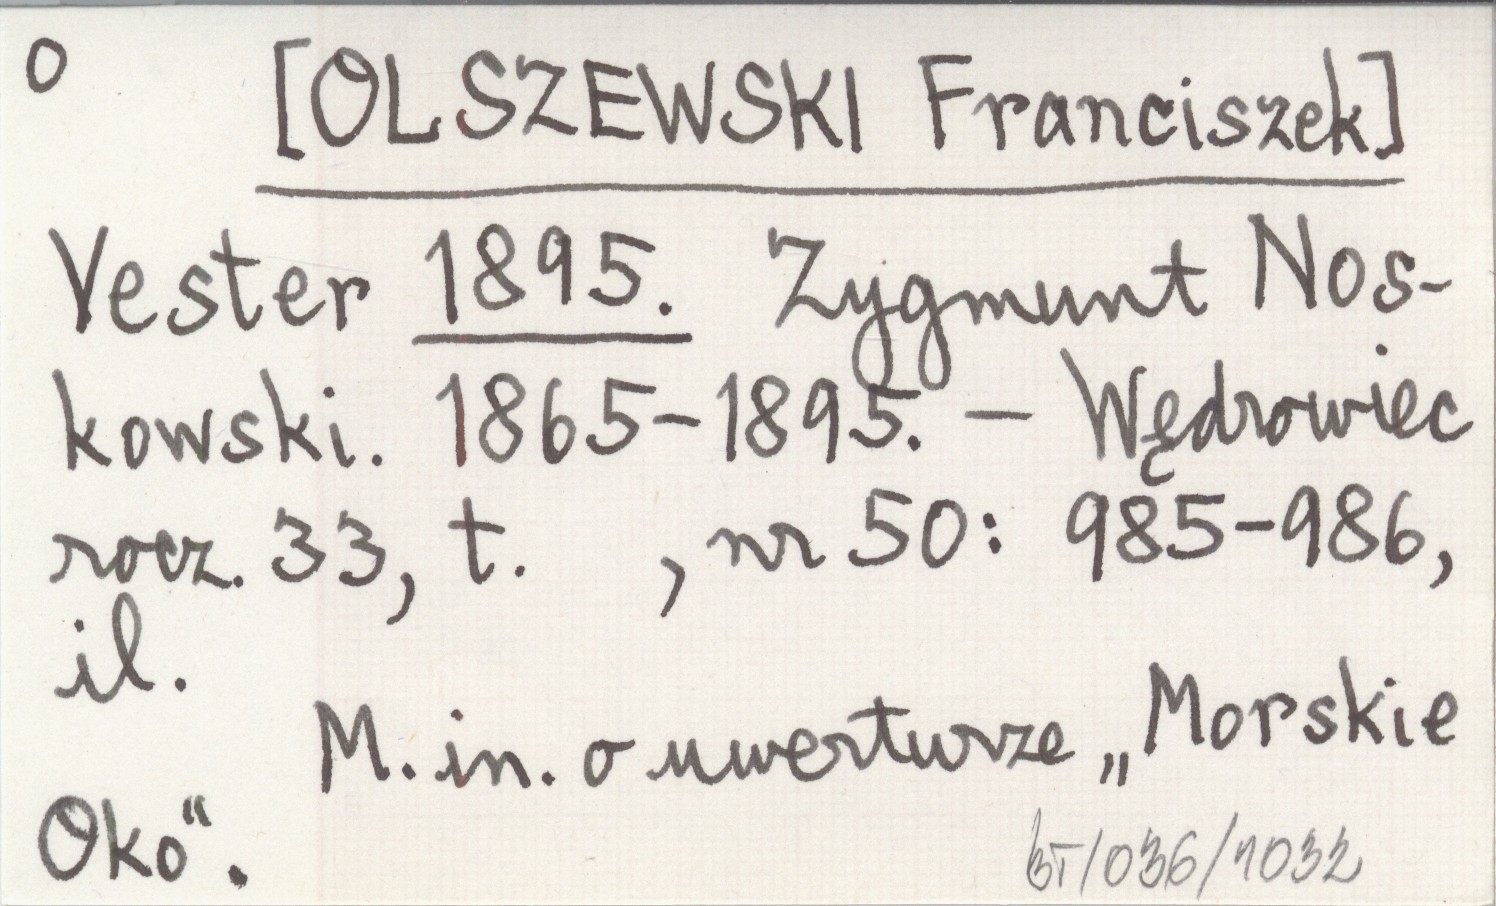 O [OLSZEWSKI Franciszek]
Vester 1895. Zygmunt Nos-
kowski. 1865-1895. – Wędrowiec
rocz. 33, t.    , nr 50: 985-986,
il.
M. in. o uwerturze „Morskie
Oko".
BT/036/1032